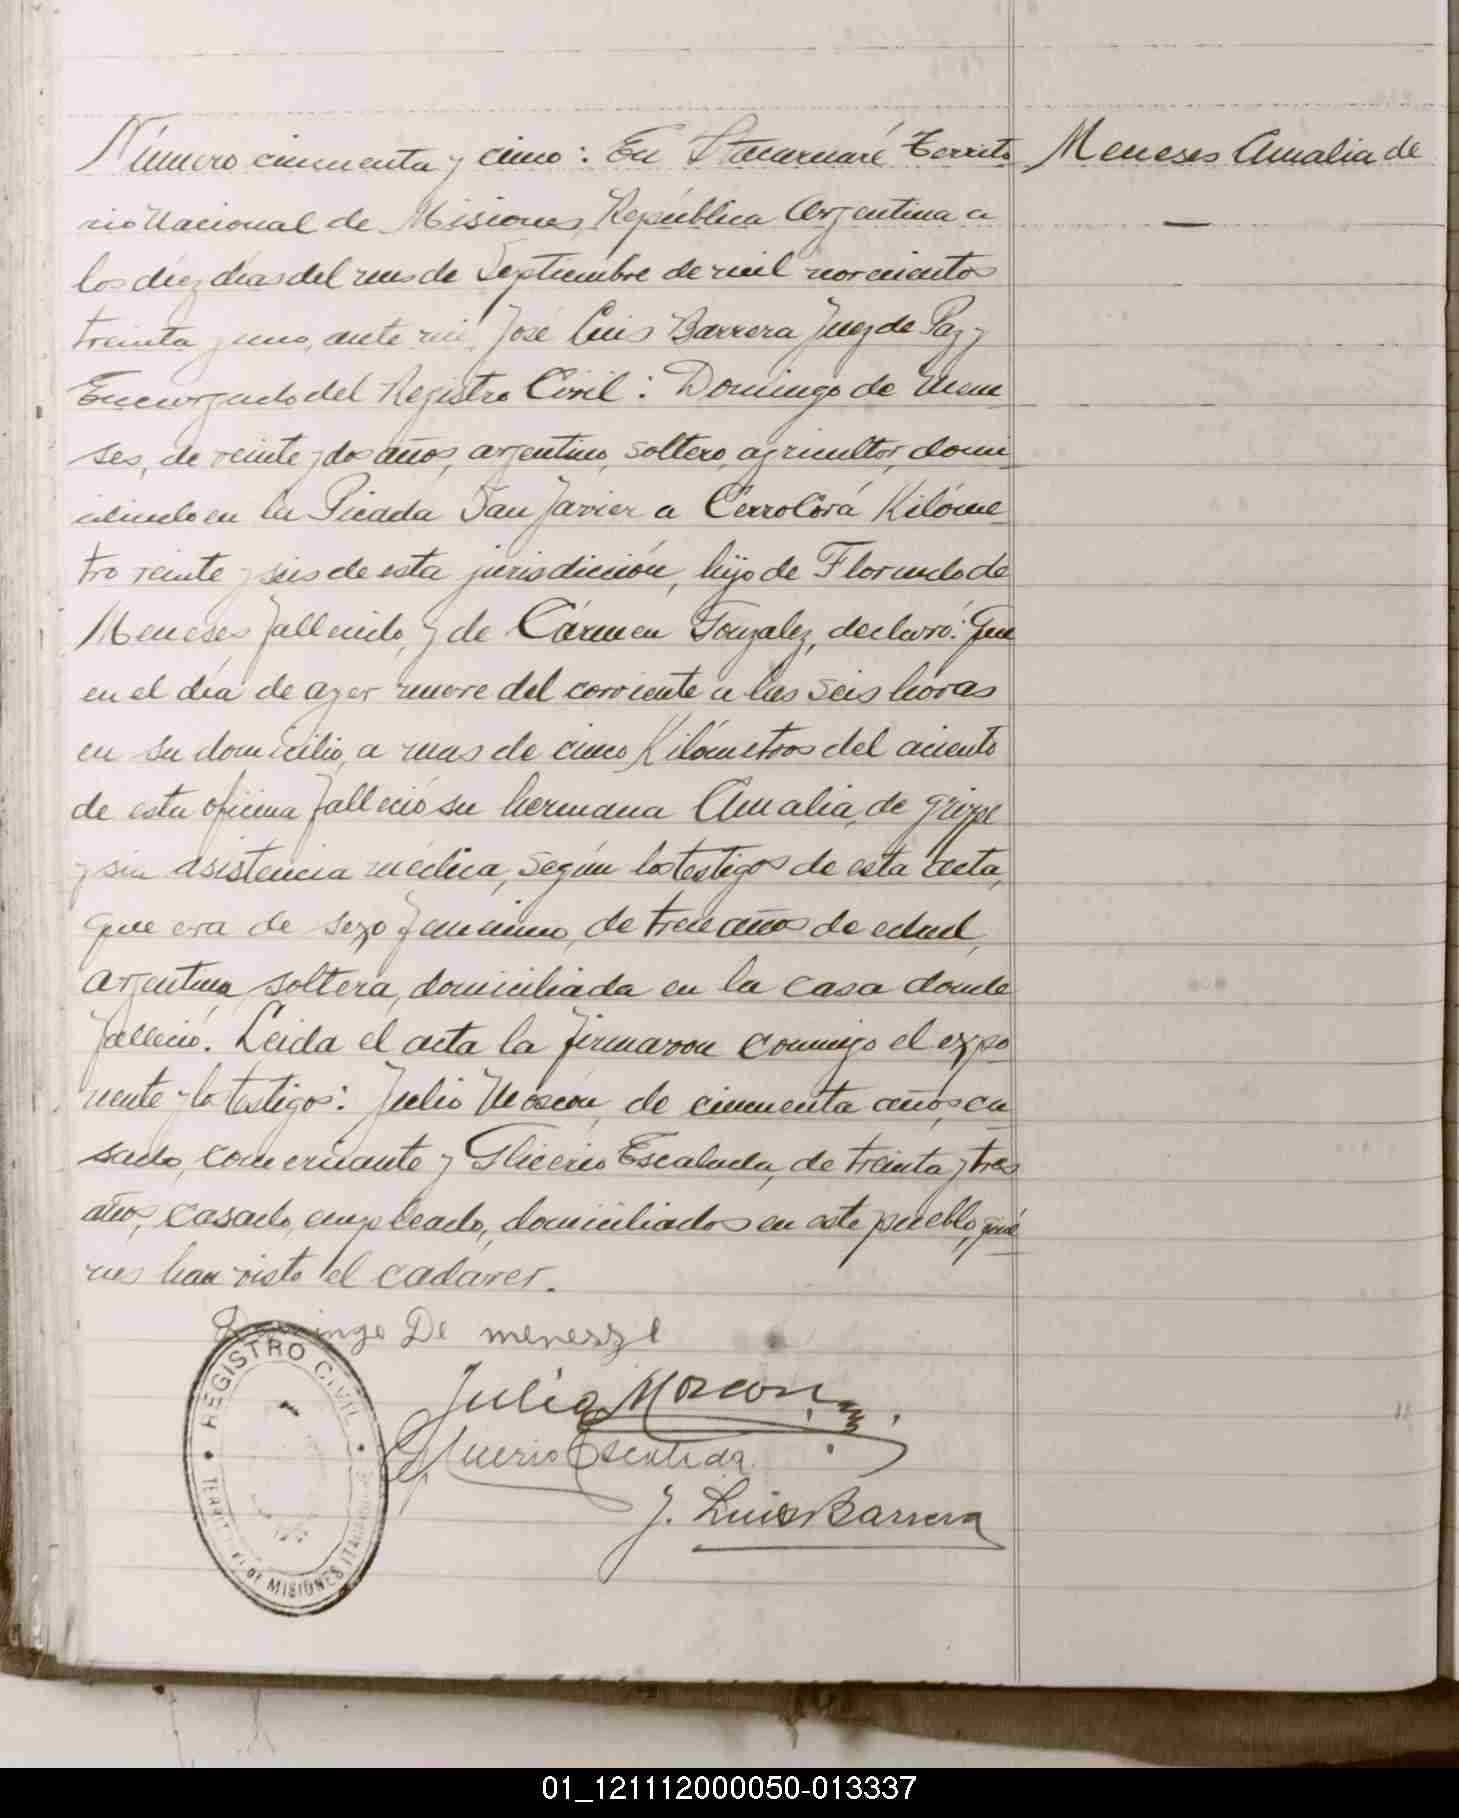 Número cincuenta y cinco: En Itacaruaré Territo
Meneses Amalia de
rio Nacional de Misiones, República Argentina a
los diez días del mes de Septiembre de mil novecientos
treinta y uno, ante mí, José Luis Barrera Juez de Paz y
Encargado del Registro Civil: Domingo de Mene
ses, de veinte y dos años, argentino, soltero, agricultor, domi
ciliado en la Picada San Javier a Cerro Corá Kilóme-
tro veinte y seis de esta jurisdicción, hijo de Florindo de
Meneses, fallecido, y de Cármen Gonzalez, declaró: Que
en el día de ayer nueve del corriente a las seis horas
en su domicilio, a mas de cinco Kilómetros del aciento
de esta oficina falleció su hermana Amalia, de gripe
y sin asistencia médica, según los testigos de esta acta,
que era de sexo femenino, de trece años de edad,
argentina, soltera, domiciliada en la casa donde
falleció. Leida el acta la firmaron conmigo el expo
nente y lo testigos: Julio Moscon, de cincuenta años, ca
sado, comerciante y Glicerio Escalada, de treinta y tres
años, casado, empleado, domiciliados en este pueblo, quié
nes han visto el cadaver.
Domingo De menesze
Julio Moscon
Glicerio Escalada
J. Luis Barrera
REGISTRO CIVIL
MISIONES
01_121112000050-013337